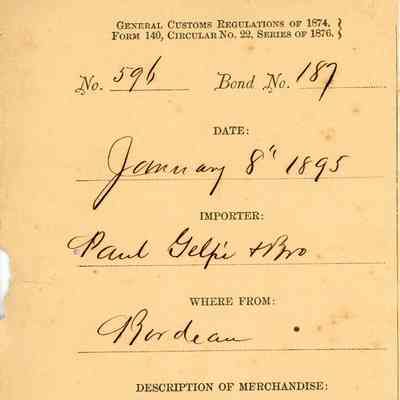 GENERAL CUSTOMS REGULATIONS OF 1874.
FORM 140, CIRCULAR NO. 22, SERIES OF 1876.
No. 596 Bond No. 187
DATE:
January 8" 1895
IMPORTER:
Paul Gelpi & Bro
WHERE FROM:
Bordeau
DESCRIPTION OF MERCHANDISE: